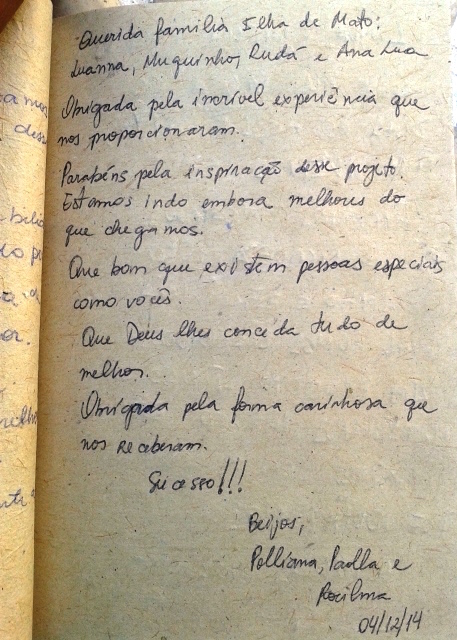 Querida família Ilha de Mato:
Luanna, Muquinho, Rudá e Ana Lua
Obrigada pela incrível experiência que
nos proporcionaram.
Parabéns pela inspiração desse projeto.
Estamos indo embora melhores do
que chegamos.
Que bom que existem pessoas especiais
como vocês.
Que Deus lhes conceda tudo de
melhor.
Obrigada pela forma carinhosa que
nos receberam.
Sucesso!!!
Beijos,
Polliana, Paolla e
Rosilma
04/12/14